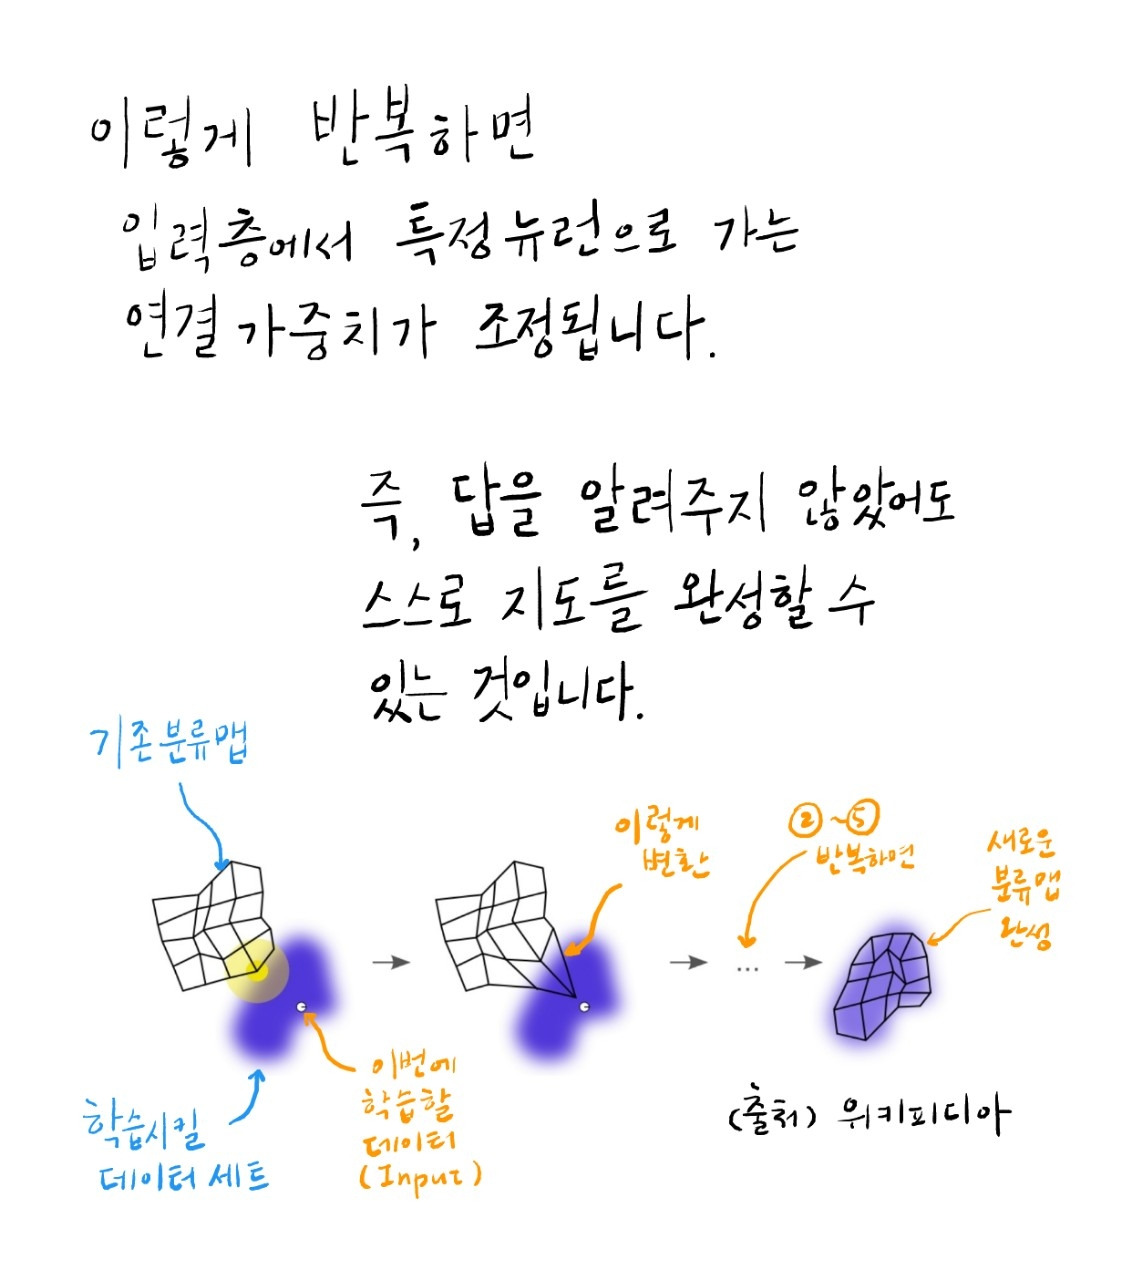 이렇게 반복하면
입력층에서 특정뉴런으로 가는
연결가중치가 조정됩니다.
즉, 답을 알려주지 않았어도
스스로 지도를 완성할 수
있는 것입니다.
기존분류맵
이렇게
변환
②~⑤
반복하면
새로운
분류맵
완성
...
이번에
학습할
데이터
(Input)
학습시킬
데이터 세트
(출처) 위키피디아